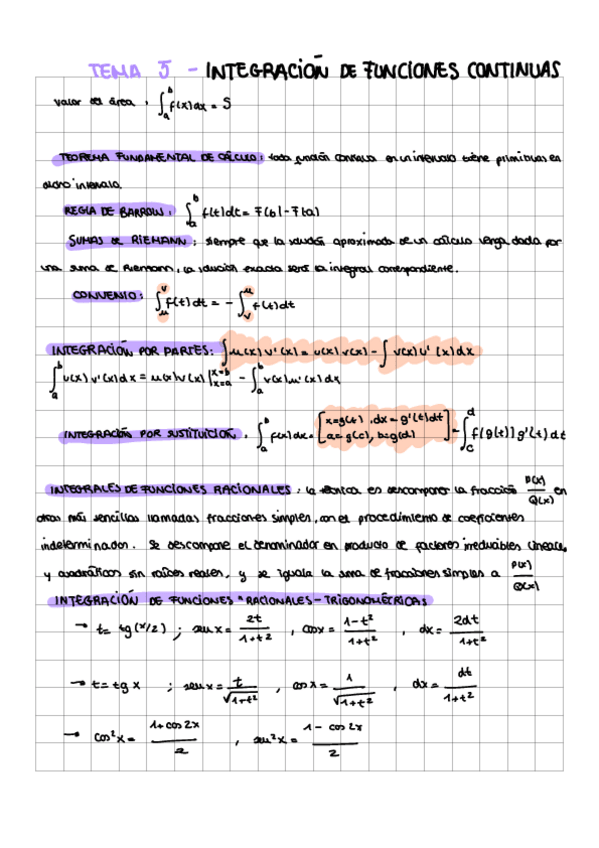 TEMA 5 - INTEGRACIÓN DE FUNCIONES CONTINUAS
valor del área: ∫_a^b f(x)dx = S
TEOREMA FUNDAMENTAL DE CÁLCULO: toda función continua en un intervalo tiene primitivas en
dicho intervalo.
REGLA DE BARROW: ∫_a^b f(t)dt = F(b) - F(a)
SUMAS DE RIEMANN: siempre que la solución aproximada de un cálculo venga dada por
una suma de Riemann, la solución exacta será la integral correspondiente.
CONVENIO: ∫_u^v f(t)dt = - ∫_v^u f(t)dt
INTEGRACIÓN POR PARTES: ∫u(x)v'(x) = u(x)v(x) - ∫v(x)u'(x)dx
∫_a^b u(x)v'(x)dx = u(x)v(x)|_{x=a}^{x=b} - ∫_a^b v(x)u'(x)dx
INTEGRACIÓN POR SUSTITUCIÓN: ∫_a^b f(x)dx = [x=g(t), dx=g'(t)dt
a=g(c), b=g(d)] = ∫_c^d f(g(t))g'(t)dt
INTEGRALES DE FUNCIONES RACIONALES: la técnica es descomponer la fracción P(x)/Q(x) en
otras más sencillas llamadas fracciones simples, con el procedimiento de coeficientes
indeterminados. Se descompone el denominador en producto de factores irreducibles lineales
y cuadráticos sin raíces reales, y se iguala la suma de fracciones simples a P(x)/Q(x)
INTEGRACIÓN DE FUNCIONES "RACIONALES-TRIGONOMÉTRICAS
→ t = tg(x/2) ; sen x = 2t/(1+t²) , cos x = (1-t²)/(1+t²) , dx = 2dt/(1+t²)
→ t = tg x ; sen x = t/√(1+t²) , cos x = 1/√(1+t²) , dx = dt/(1+t²)
→ cos²x = (1+cos2x)/2 , sen²x = (1-cos2x)/2